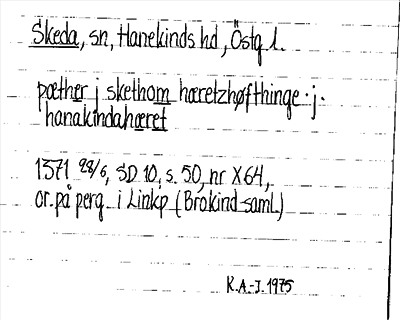 Skeda, sn, Hanekinds hd, Östg l.
pæther j skethom hæretzhøfthinge · j ·
hanakindahæret
1371 28/6, SD 10, s. 50, nr X64,
or. på perg i Linkp (Brokind-saml.)
K.A.-J. 1975